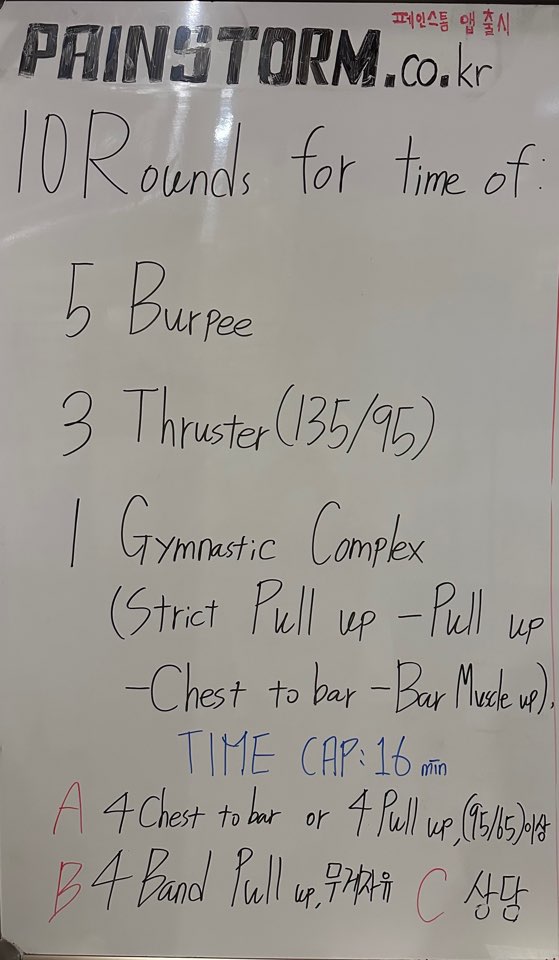 페인스톰 앱 출시
PAINSTORM.co.kr
10 Rounds for time of:
5 Burpee
3 Thruster (135/95)
1 Gymnastic Complex
(Strict Pull up - Pull up
- Chest to bar - Bar Muscle up),
TIME CAP: 16 min
A 4 Chest to bar or 4 Pull up, (95/65)이상
B 4 Band Pull up, 무게자유 C 상담